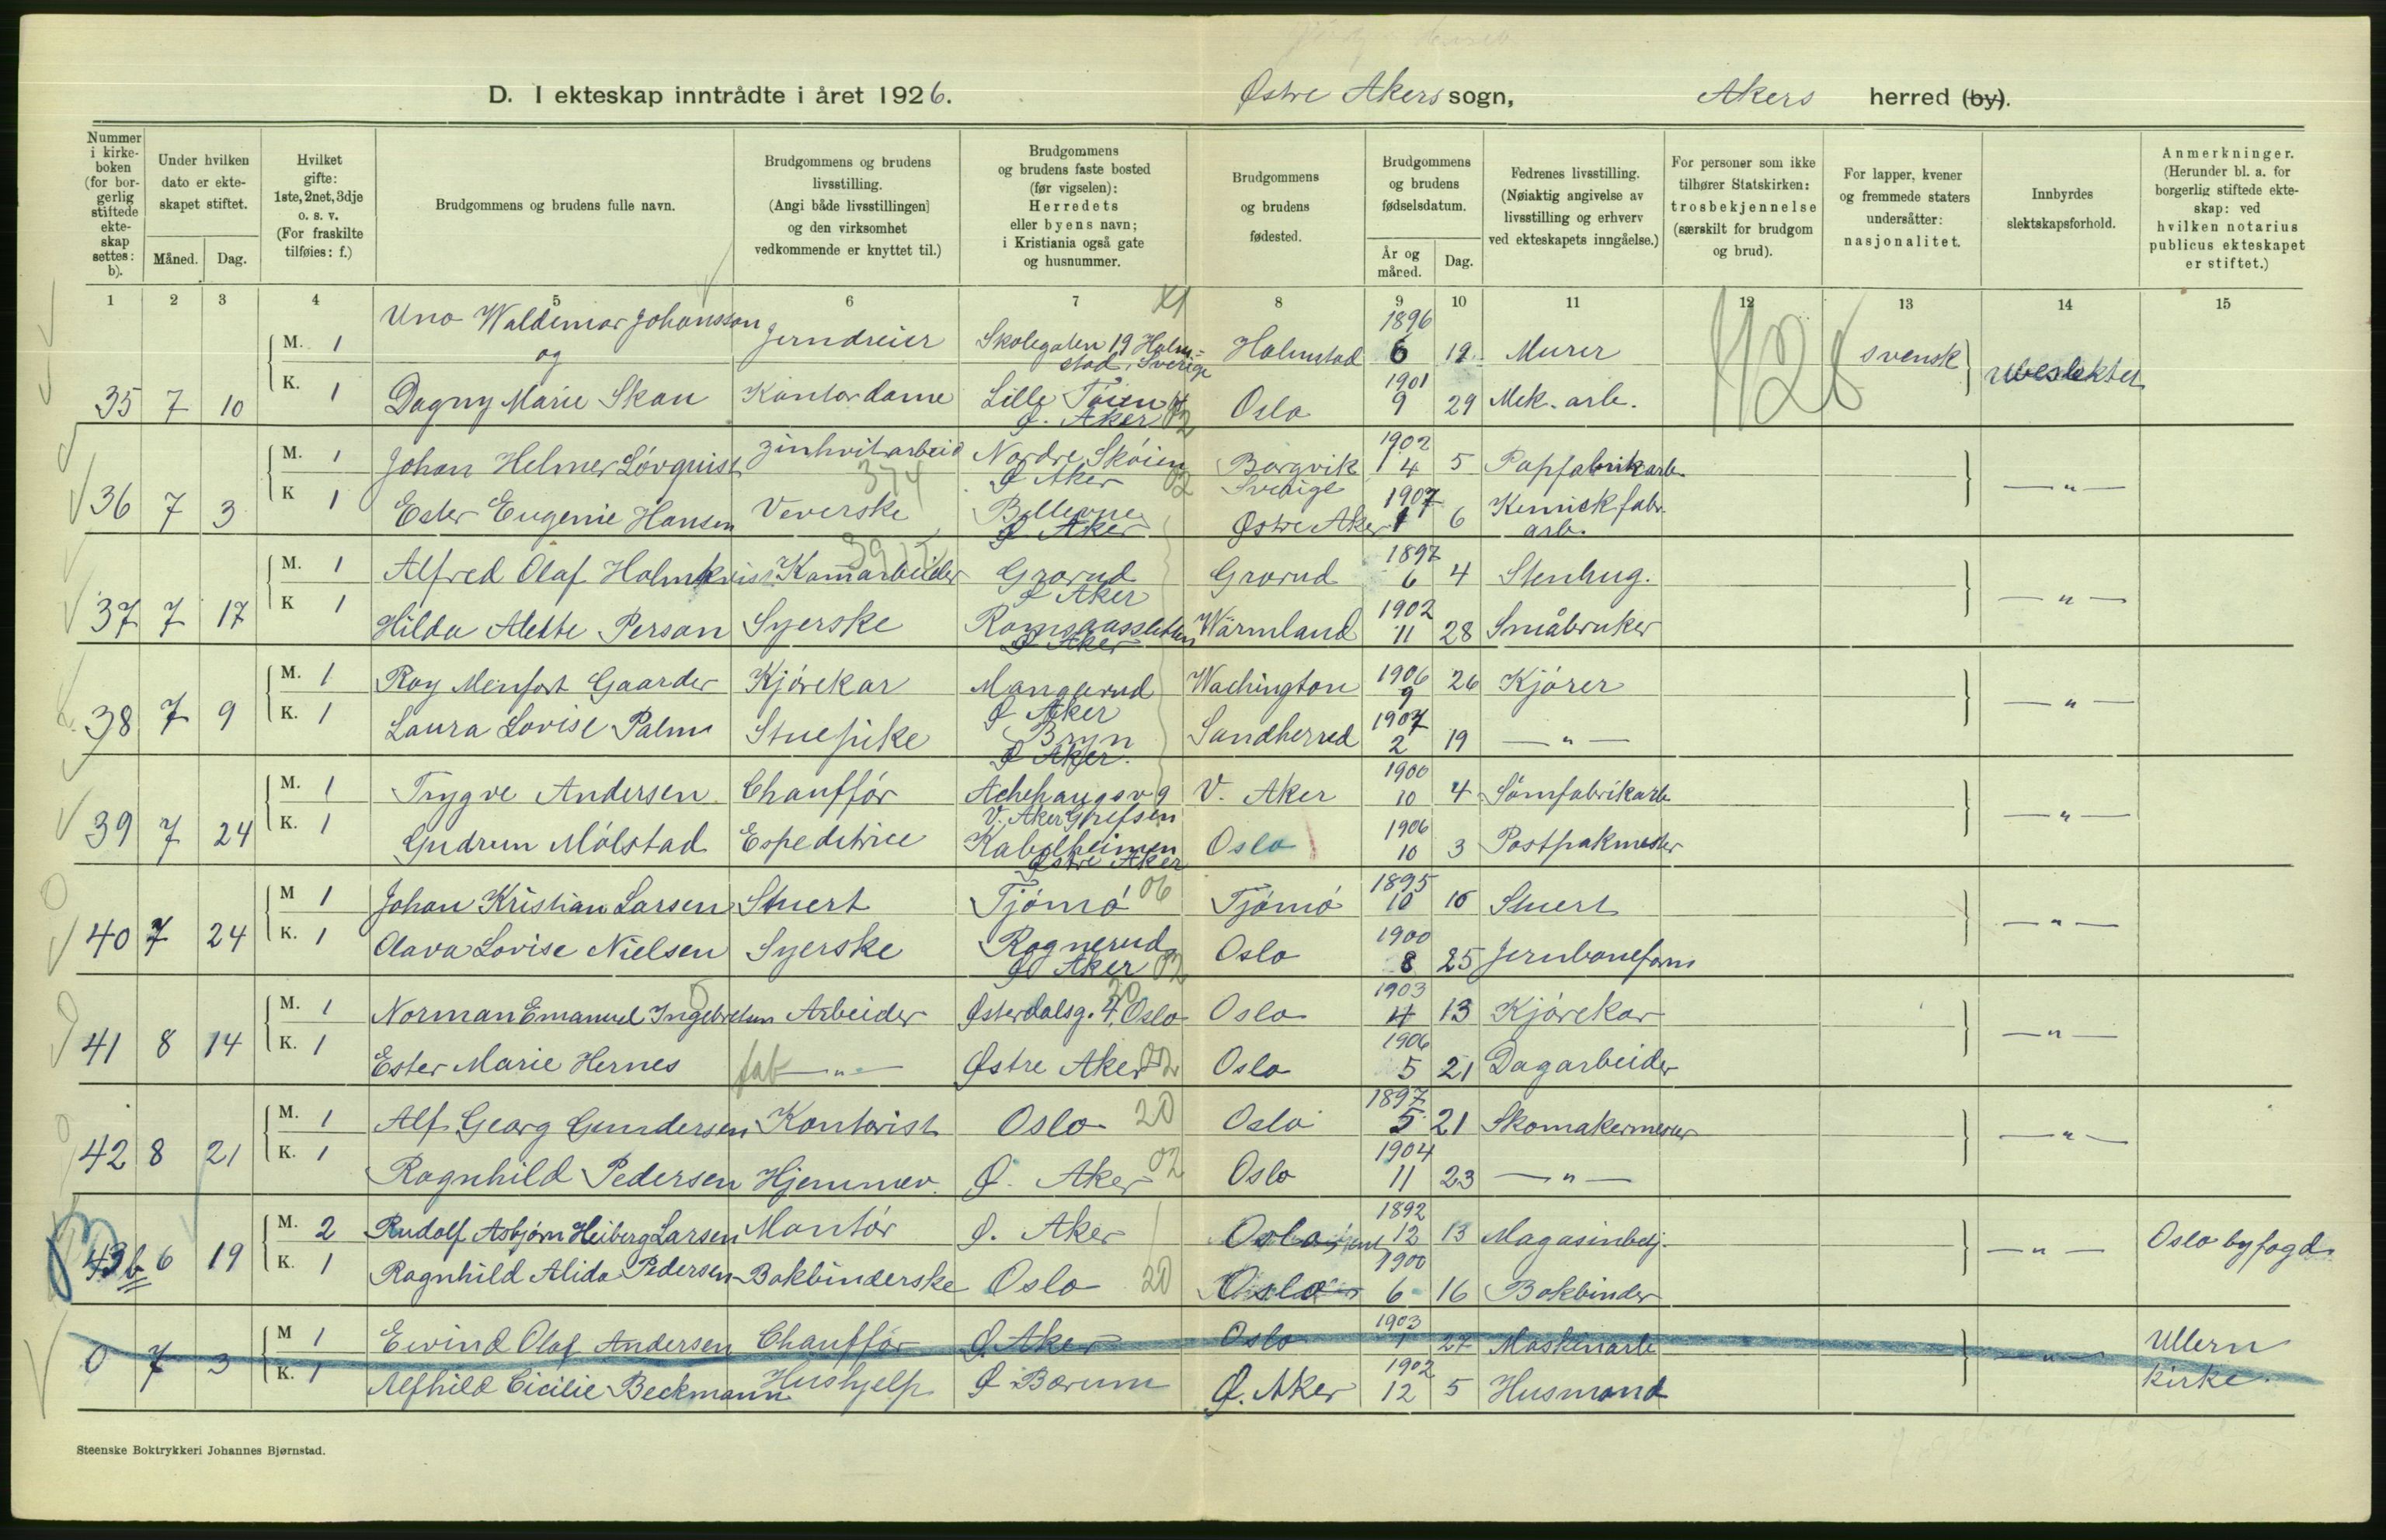 D. I ekteskap inntrådte i året 1926. Østre Akers sogn, Akers herred (by).
Nummer i kirkeboken (for borgerlig stiftede ekteskap settes: b).
Under hvilken dato er ekteskapet stiftet.
Måned. Dag.
Hvilket gifte: 1ste, 2net, 3dje o. s. v. (For fraskilte tilføies: f.)
Brudgommens og brudens fulle navn.
Brudgommens og brudens livsstilling. (Angi både livsstillingen) og den virksomhet vedkommende er knyttet til.)
Brudgommens og brudens faste bosted (før vigselen): Herredets eller byens navn; i Kristiania også gate og husnummer.
Brudgommens og brudens fødested.
Brudgommens og brudens fødselsdatum.
År og måned. Dag.
Fedrenes livsstilling. (Nøiaktig angivelse av livsstilling og erhverv ved ekteskapets inngåelse.)
For personer som ikke tilhører Statskirken: trosbekjennelse (særskilt for brudgom og brud).
For lapper, kvener og fremmede staters undersåtter: nasjonalitet.
Innbyrdes slektskapsforhold.
Anmerkninger. (Herunder bl. a. for borgerlig stiftede ekteskap: ved hvilken notarius publicus ekteskapet er stiftet.)
1 2 3 4 5 6 7 8 9 10 11 12 13 14 15
M. 1 Uno Waldemar Johansson Jerndreier Skolegaten 19 Halmstad, Sverige Halmstad 1896 6 19 Murer svensk ubeslektet
og
35 7 10 K. 1 Dagny Marie Skau Kontordame Lille Tøien Ø. Aker 02 Oslo 1901 9 29 Mek. arb.
M. 1 Johan Helmer Lövquist Zinkvitarbeid Nordre Skøien Ø Aker 02 Borgvik Sverige 1902 4 5 Papfabrikarb. — " —
36 7 3 K 1 Ester Eugenie Hansen Veverske 374 Bellevue Ø Aker Østre Aker 1907 1 6 Kemisk fabr. arb.
M. 1 Alfred Olaf Holmkvist Kamarbeider Grorud Ø Aker Grorud 1897 6 4 Stenhug. — " —
37 7 17 K 1 Hilda Alette Person Syerske Romsaassletten Ø Aker Wärmland 1902 11 28 Småbruker
M. 1 Roy Menfort Gaarder Kjørekar Manglerud Ø Aker Wachington 1906 9 26 Kjører — " —
38 7 9 K. 1 Laura Lovise Palm Stuepike Bryn Ø Aker. Sandherred 1907 2 19 — " —
M. 1 Trygve Andersen Chauffør V. Aker Grefsen V. Aker 1900 10 4 Sømfabrikarb — " —
39 7 24 K. 1 Gudrun Mólstad Espeditrice Kabelheimen Østre Aker Oslo 1906 10 3 Postpakmester
M 1 Johan Kristian Larsen Stuert Tjömö 06 Tjömö 1895 10 16 Stuert — " —
40 7 24 K. 1 Olava Lovise Nielsen Syerske Rognerud Ø Aker 02 Oslo 1900 8 25 Jernbaneform
M. 1 Norman Emanuel Ingebretsen Arbeider Østerdalsg. 4, Oslo 20 Oslo 1903 4 13 Kjørekar — " —
41 8 14 K. 1 Ester Marie Hernes fab — " — Østre Aker 02 Oslo 1906 5 21 Dagarbeider
M. 1 Alf Georg Gundersen Kontorist Oslo 20 Oslo 1897 5 21 Skomakermester — " —
42 8 21 K. 1 Ragnhild Pedersen Hjemmev. Ø. Aker 02 Oslo 1904 11 23 — " —
M. 2 Rudolf Asbjørn Heiberg Larsen Montør Ø. Aker Oslo 1892 12 13 Magasinbetj. — " — Oslo byfogd.
43b 6 19 K. 1 Ragnhild Alida Pedersen Bokbinderske Oslo 20 Oslo 1900 6 16 Bokbinder
M 1 Eivind Olaf Andersen Chauffør Ø Aker Oslo 1903 1 27 Maskinarb — " — Ullern kirke.
0 7 3 K. 1 Alfhild Cicilie Beckmann Hushjelp Ø Bærum Ø. Aker 1902 12 5 Husmand
Steenske Boktrykkeri Johannes Bjørnstad.